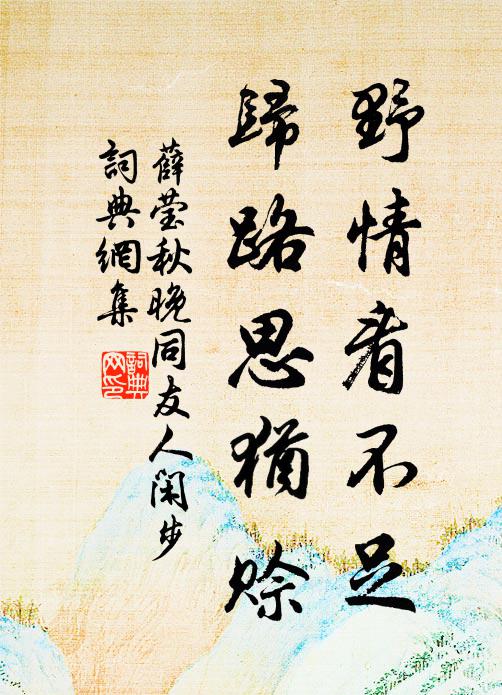 野情看不足
歸路思猶賒
薛瑩秋晚同友人閑步
詞典網集
詞典
网印